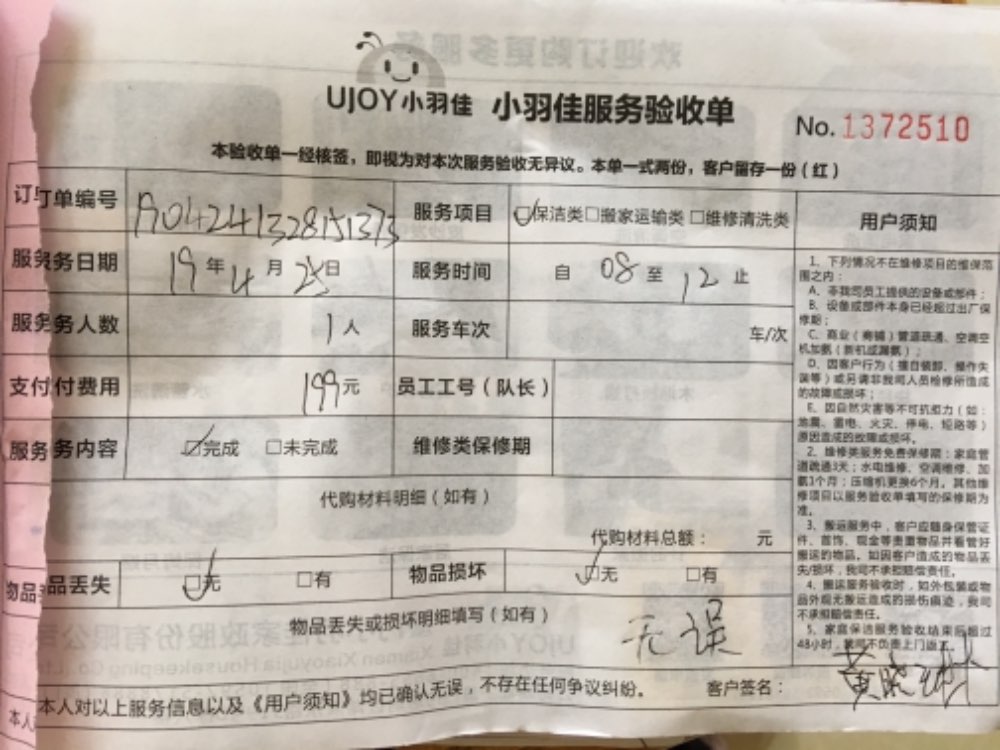 UJOY小羽佳 小羽佳服务验收单
No. 1372510
本验收单一经核签，即视为对本次服务验收无异议。本单一式两份，客户留存一份（红）
订单编号 1904241328151373 服务项目 ☑保洁类□搬家运输类□维修清洗类
服务日期 19年4月25日 服务时间 自 08 至 12 止
服务人数 1人 服务车次 车/次
支付费用 199元 员工工号（队长）
服务内容 ☑完成 □未完成 维修类保修期
代购材料明细（如有）
代购材料总额： 元
物品丢失 ☑无 □有 物品损坏 ☑无 □有
物品丢失或损坏明细填写（如有）
无误
本人对以上服务信息以及《用户须知》均已确认无误，不存在任何争议纠纷。 客户签名：
用户须知
1、下列情况不在维修项目的维保范
围之内：
A、非我司员工提供的设备或部件；
B、设备或部件本身已经超过出厂保
修期；
C、商业（商铺）管道疏通、空调空
机加氨（新机或漏氨）；
D、因客户行为（擅自装卸、操作失
误等）或另请非我司人员检修所造成
的故障或损坏；
E、因自然灾害等不可抗拒力（如：
地震、雷电、火灾、停电、短路等）
原因造成的故障或损坏。
2、维修类服务免费保修期：家庭管
道疏通3天；水电维修、空调维修、加
氨1个月；压缩机更换6个月。其他维
修项目以服务验收单填写的保修期为
准。
3、搬运服务中，客户应随身保管证
件、首饰、现金等贵重物品并看管好
搬运的物品。如因客户造成的物品丢
失/损坏，我司不承担赔偿责任。
4、搬运服务验收时，如外包装或物
品外观无搬运造成的损伤痕迹，我司
不承担赔偿责任。
5、家庭保洁服务验收结束后超过
48小时，我司不负责上门返工。